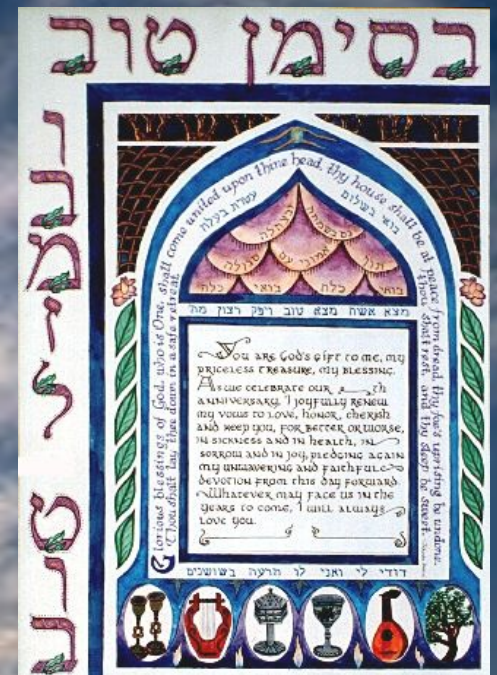 בסימן טוב
ובמזל טוב
Glorious blessings of God, who is One, shall come united upon thine head, thy house shall be at peace from dread, thy foe's uprising be undone.
Thou shalt lay thee down in a safe retreat
thou shalt rest, and thy sleep be sweet.
בואי בשלום
עטרת בעלה
גם בשמחה ובצהלה
תוך אמוני עם סגולה
בואי כלה בואי כלה
מצא אשה מצא טוב ויפק רצון מה'
You are God's gift to me, my
priceless treasure, my blessing.
As we celebrate our th
anniversary, I joyfully renew
my vows to love, honor, cherish
and keep you, for better or worse,
in sickness and in health, in
sorrow and in joy, pledging again
my unwavering and faithful
devotion from this day forward.
Whatever may face us in the
years to come, I will always
love you.
דודי לי ואני לו הרעה בשושנים